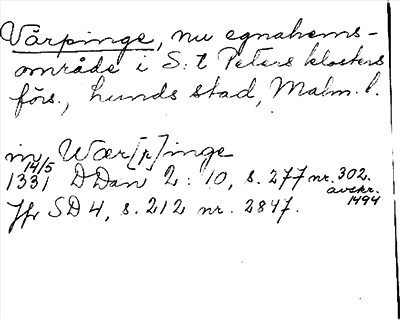 Vårpinge, nu egnahems-
område i S:t Peters klosters
förs., Lunds stad, Malm. l.
in Wær[p]inge
14/5
1331 DDan 2:10, s. 277 nr. 302.
avskr.
1494
Jfr SD 4, s. 212 nr. 2847.